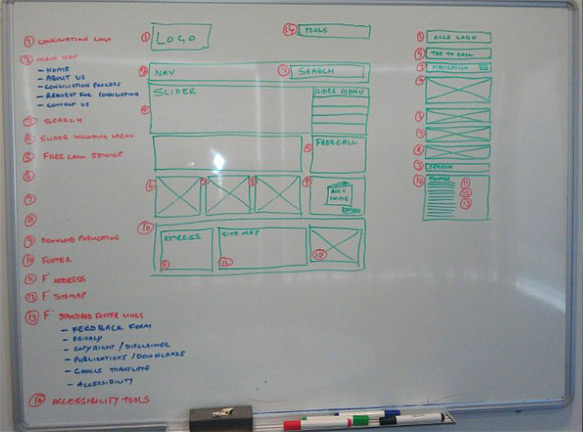 ① CONCILIATION LOGO
② MAIN NAV
- HOME
- ABOUT US
- CONCILIATION PROCESS
- REQUEST FOR CONCILIATION
- CONTACT US
③ SEARCH
④ SLIDER INCLUDING MENU
⑤ FREE CALL SERVICE
⑥
⑦
⑧
⑨ DOWNLOAD PUBLICATION
⑩ FOOTER
⑪ F' ADDRESS
⑫ F' SITEMAP
⑬ F' STANDARD FOOTER LINKS
- FEEDBACK FORM
- PRIVACY
- COPYRIGHT / DISCLAIMER
- PUBLICATIONS / DOWNLOADS
- GOOGLE TRANSLATE
- ACCESSIBILITY
⑭ ACCESSIBILITY TOOLS
① LOGO
⑭ TOOLS
② NAV
③ SEARCH
④ SLIDER
SLIDER MENU
⑤ FREECALL
⑥
⑨
⑩
ADDRESS
⑪
SITE MAP
⑫
⑬
① LOGO
⑤ TAP TO CALL
② NAVIGATION
④
③ SEARCH
⑩ FOOTER
⑪
⑫
⑬